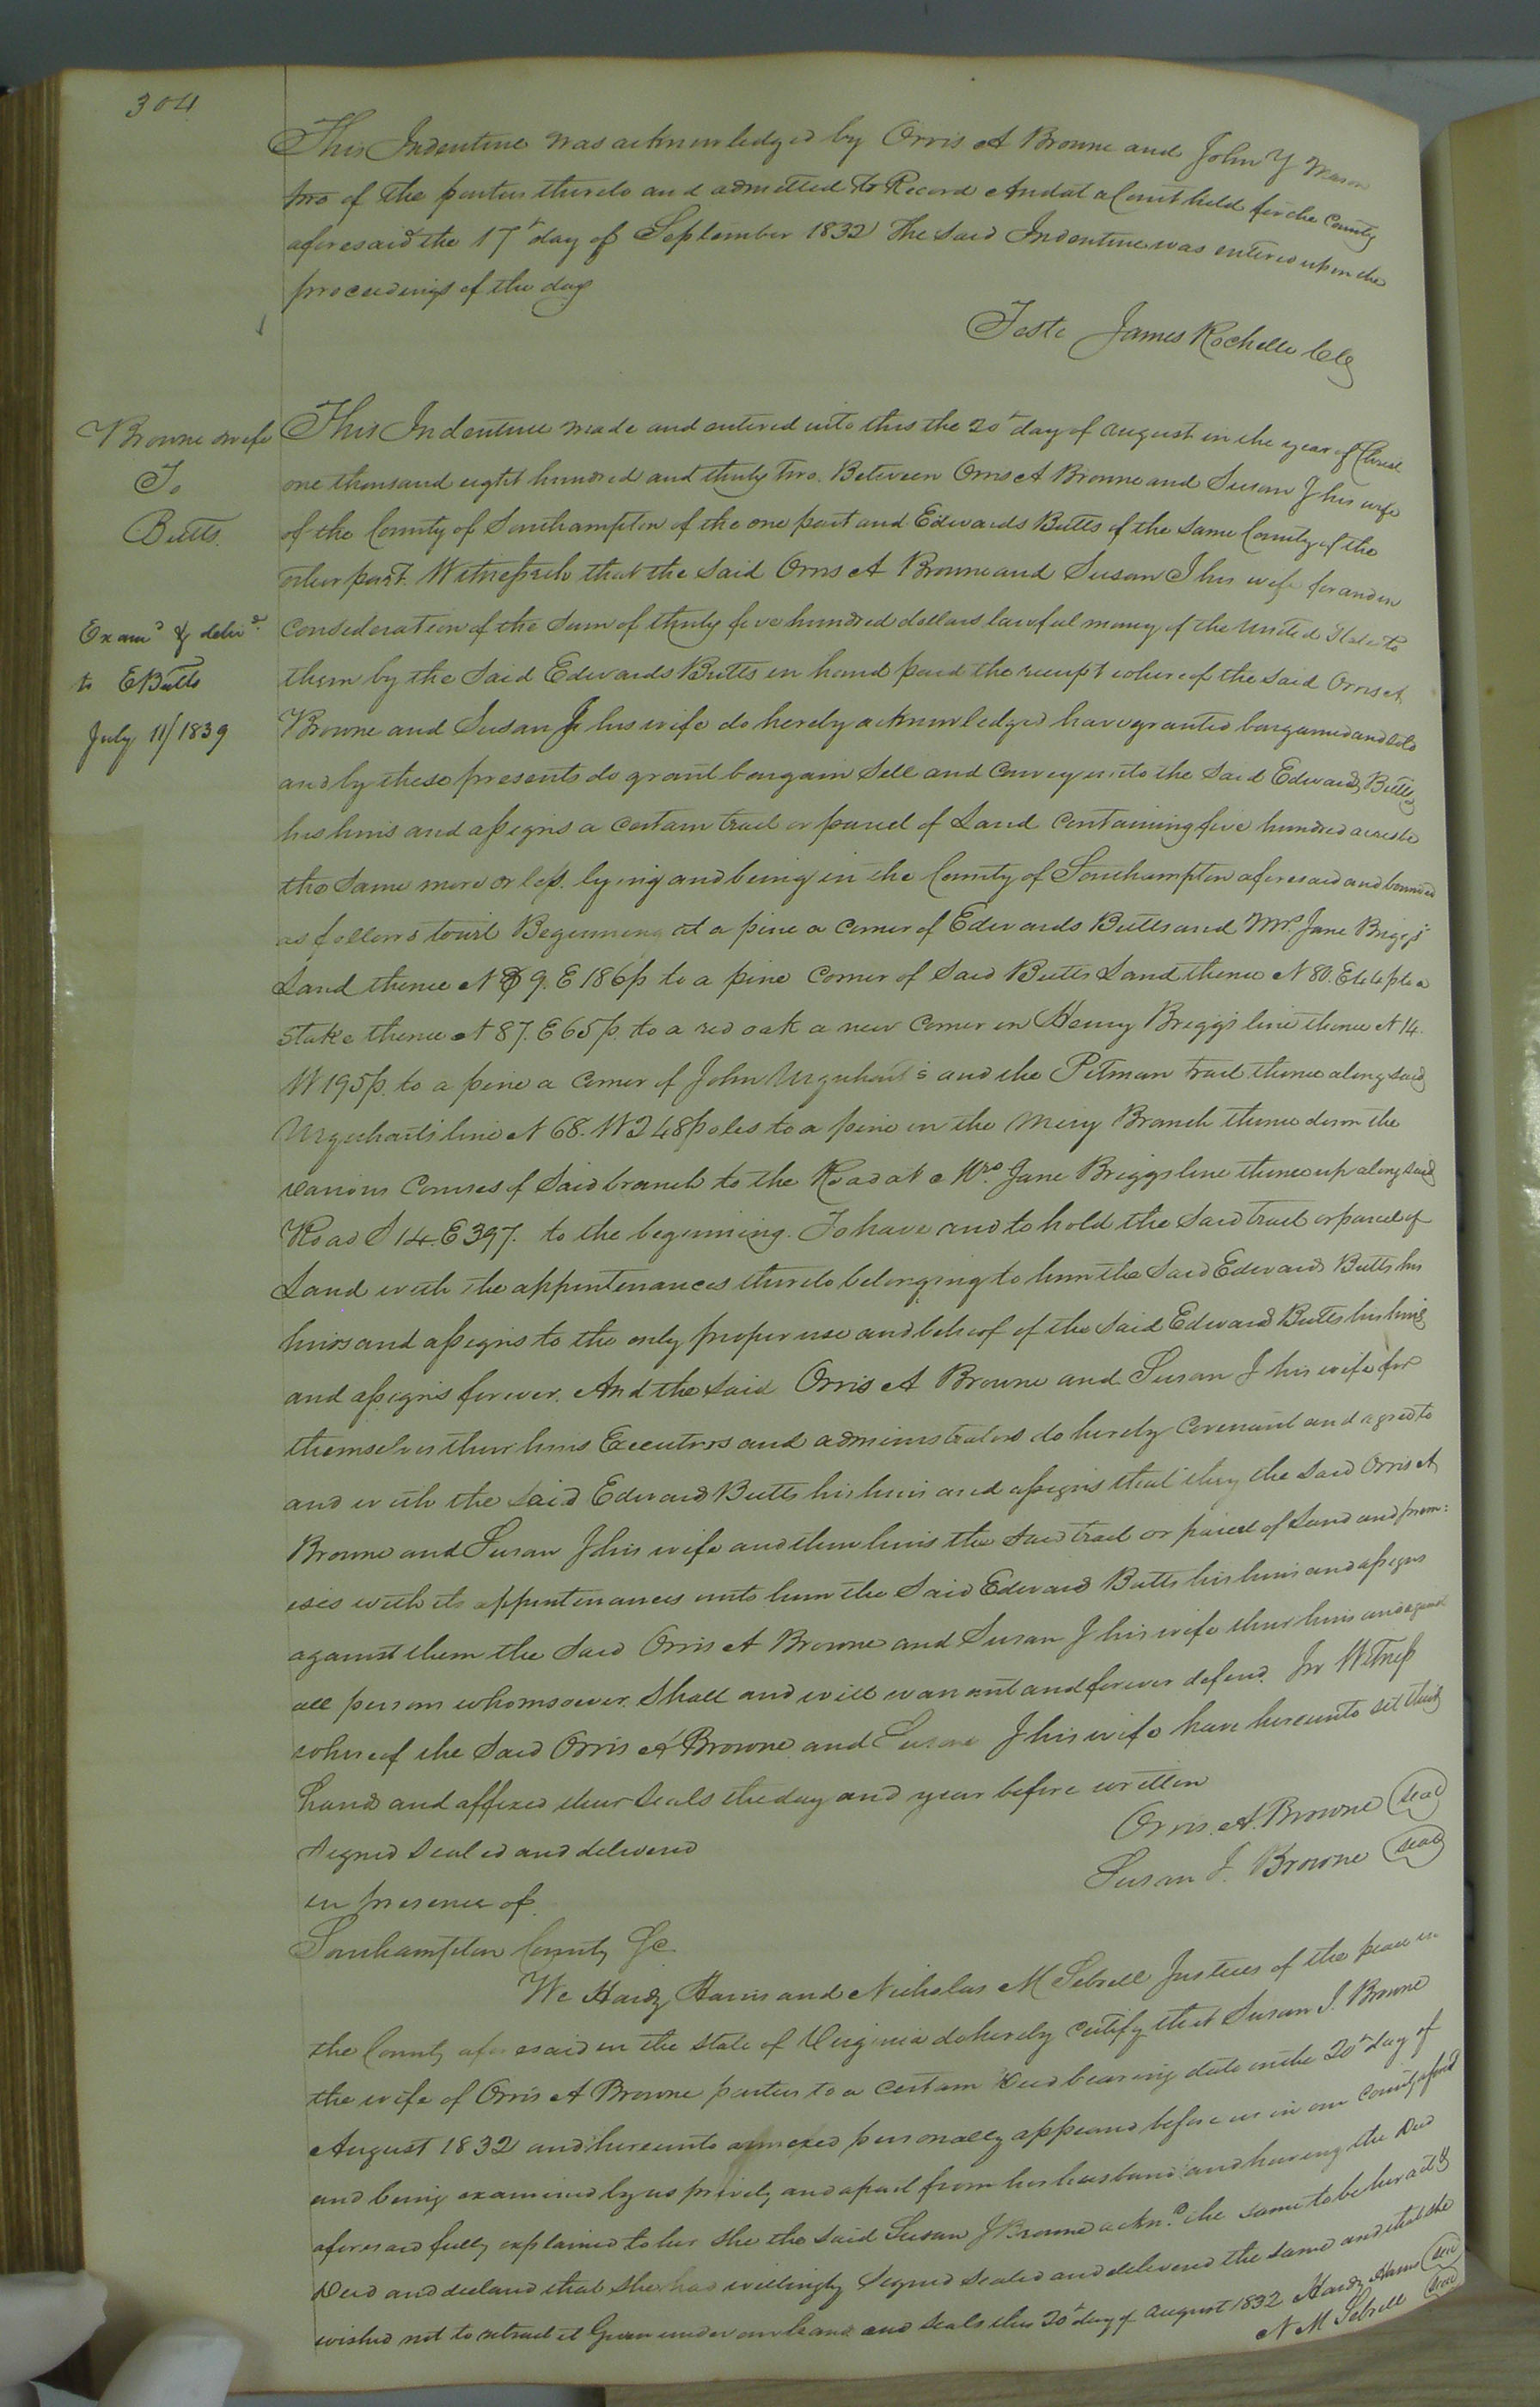 304
This Indenture was acknowledged by Orris A Browne and John Y Mason
two of the parties thereto and admitted to Record And at a Court held for the County
aforesaid the 17th day of September 1832 The Said Indenture was entered upon the
proceedings of the day
Teste James Rochelle Clk
Browne & wife
To
Butts.
Examd & delivd
to E Butts
July 11/1839
This Indenture made and entered into this the 20th day of August in the year of Christ
one thousand eight hundred and thirty two. Between Orris A Browne and Susan J his wife
of the County of Southampton of the one part and Edwards Butts of the Same County of the
other part. Witnesseth that the Said Orris A Browne and Susan J his wife for and in
Consideration of the Sum of thirty five hundred dollars lawful money of the United States to
them by the Said Edwards Butts in hand paid the receipt whereof the Said Orris A
Browne and Susan J his wife do hereby acknowledged have granted bargained and sold
and by these presents do grant bargain Sell and Convey unto the Said Edwards Butts
his heirs and assigns a Certain tract or parcel of Land Containing five hundred acres be
the Same more or less. lying and being in the County of Southampton aforesaid and bounded
as follows towit Beginning at a pine a Corner of Edwards Butts and Mrs. Jane Briggs'
Land thence N 9. E 186p to a pine Corner of Said Butts Land thence N 80. E 44p to a
Stake thence N 87. E 65p. to a red oak a new Corner in Henry Briggs line thence N 14.
W 195p. to a pine a Corner of John Urquhart's and the Pitman tract thence along said
Urquharts line N 68. W 248 poles to a pine in the Miery Branch thence down the
various Courses of Said branch to the Road at Mrs. Jane Briggs line thence up along said
Road S 14. E 397. to the beginning. To have and to hold the Said tract or parcel of
Land with the appurtenances thereto belonging to him the Said Edwards Butts his
heirs and assigns to the only proper use and behoof of the Said Edward Butts his heirs
and assigns forever. And the Said Orris A Browne and Susan J his wife for
themselves their heirs Executors and administrators do hereby Covenant and agree to
and with the Said Edward Butts his heirs and assigns that they the Said Orris A
Browne and Susan J his wife and their heirs the Said tract or parcel of Land and prem:
ises with its appurtenances unto him the Said Edward Butts his heirs and assigns
against them the Said Orris A Browne and Susan J his wife their heirs and against
all persons whomsoever. Shall and will warrant and forever defend. In Witness
whereof the Said Orris A Browne and Susan J his wife have hereunto set their
hands and affixed their Seals the day and year before written
Signed Sealed and delivered
in presence of.
Orris. A. Browne Seal
Susan J. Browne Seal
Southampton County Sc
We Hardy Harris and Nicholas M Sebrell Justices of the peace in
the County aforesaid in the State of Virginia do hereby Certify that Susan J. Browne
the wife of Orris A Browne parties to a Certain Deed bearing date on the 20th day of
August 1832 and hereunto annexed personally appeared before us in our County aforesd
and being examined by us privily and apart from her husband and having the Deed
aforesaid fully explained to her She the Said Susan J Browne acknd. the Same to be her act &
Deed and declared that She had willingly Signed Sealed and delivered the Same and that she
wished not to retract it Given under our hands and Seals this 20th day of August 1832 Hardy Harris Seal
N M Sebrell Seal